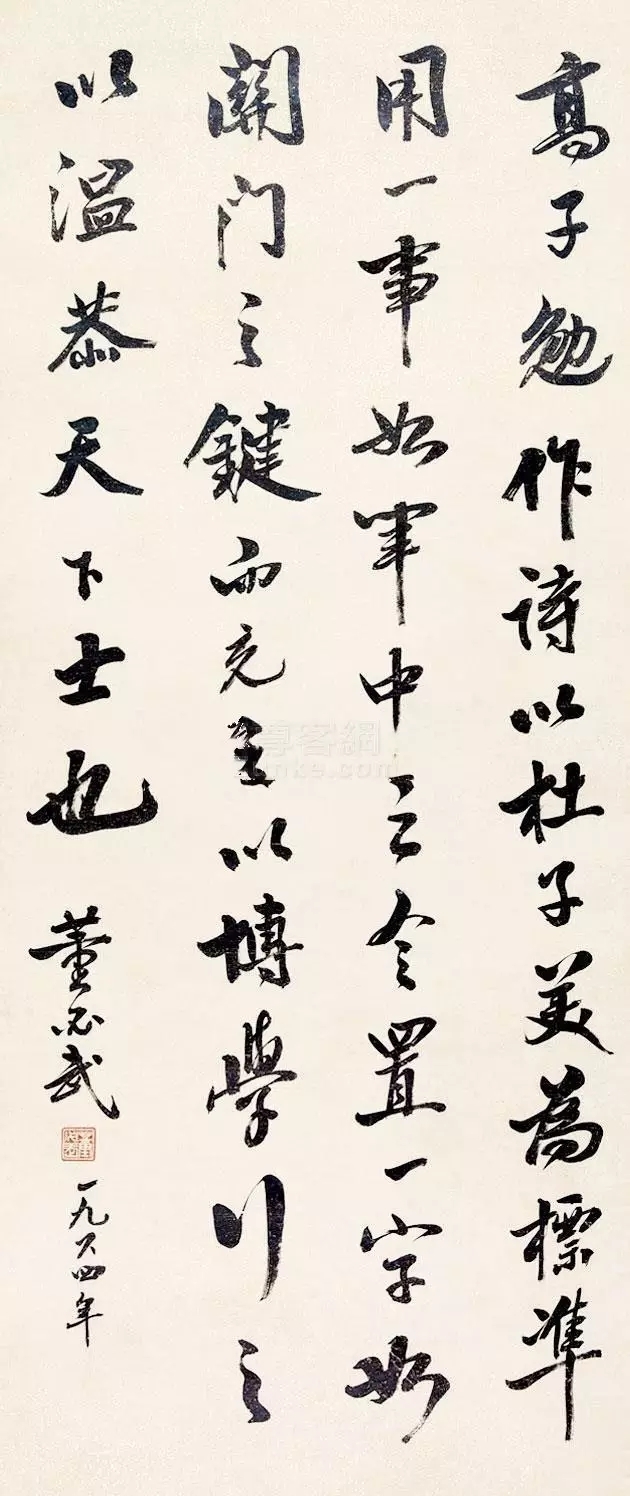 高子勉作詩以杜子美為標準
用一事如軍中之令置一字如
關門之鍵而充之以博學行之
以温恭天下士也
董必武
一九六四年
尊客網
zunke.com